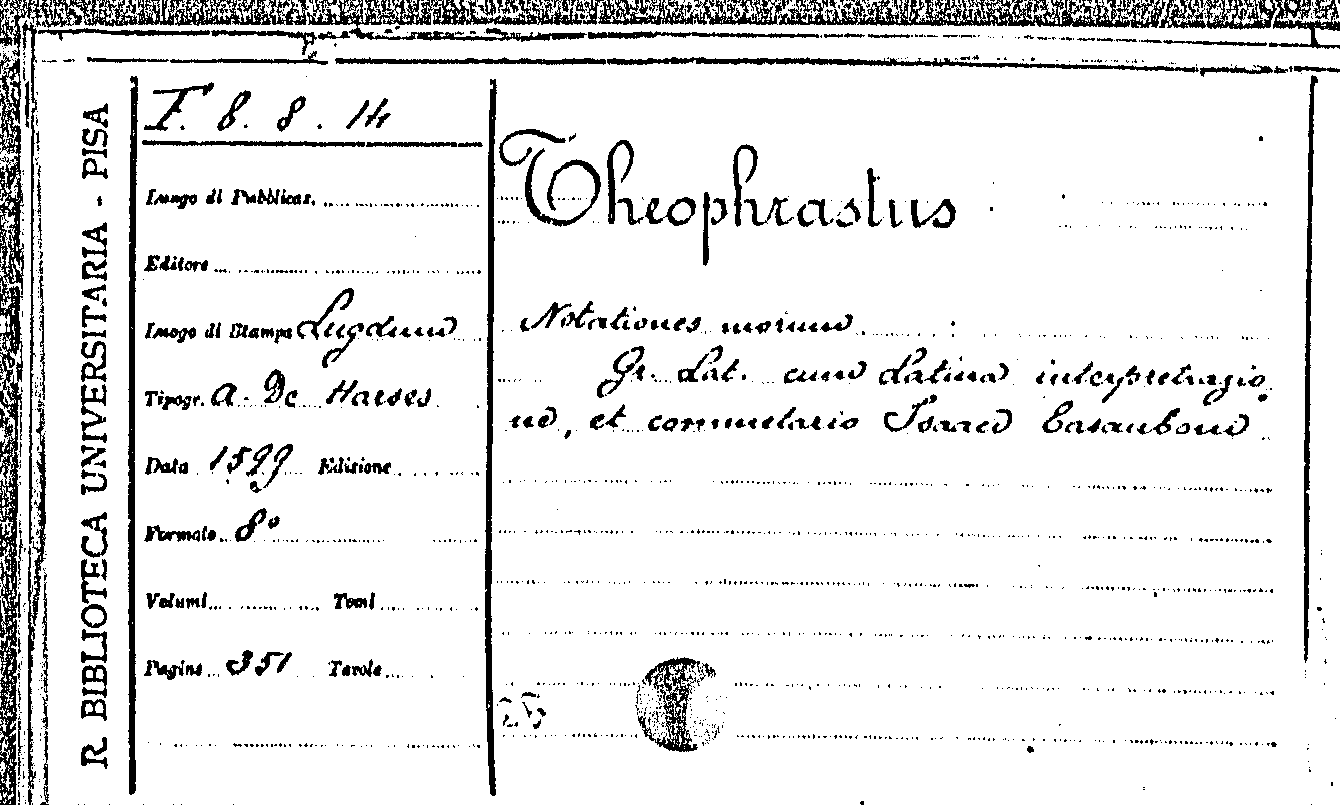 R. BIBLIOTECA UNIVERSITARIA - PISA
I. 8. 8. 14
Luogo di Pubblicaz.
Editore
Luogo di Stampa Lugduni
Tipogr. A. De Harses
Data 1599 Edizione
Formato 8°
Volumi Tomi
Pagine 351 Tavole
Theophrastus
Notationes morum
Gr. Lat. cum Latina interpretazio
ne, et commetario Isaaci Casauboni